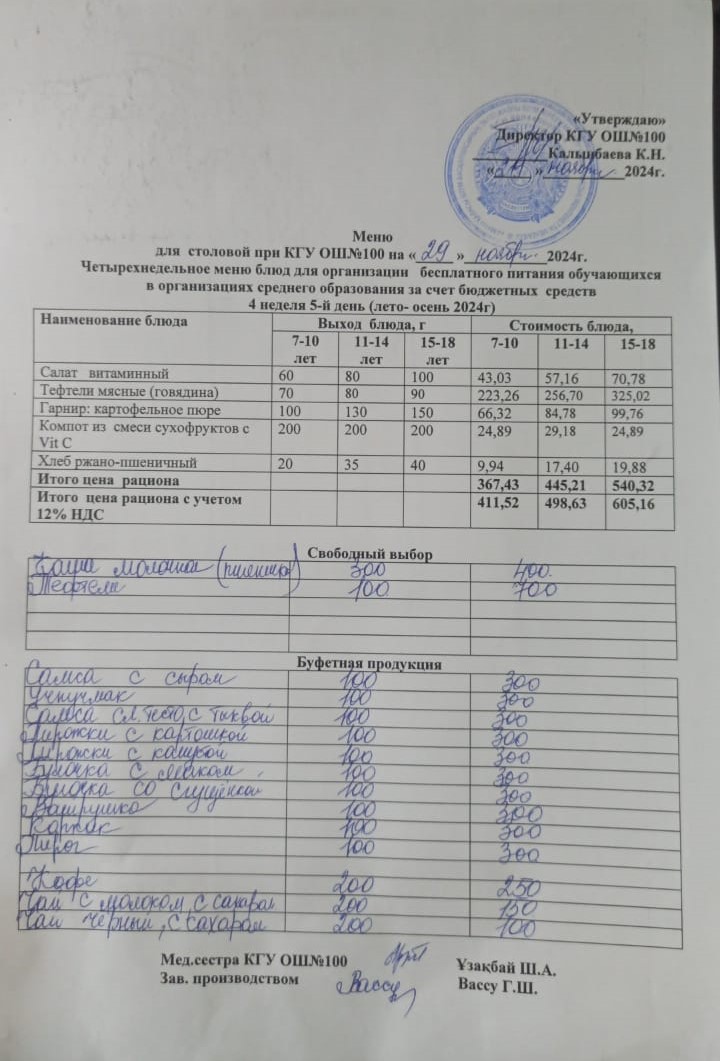 «Утверждаю»
Директор КГУ ОШ№100
Калынбаева К.Н.
« 29 » ноября 2024г.
Меню
для столовой при КГУ ОШ№100 на « 29 » ноября 2024г.
Четырехнедельное меню блюд для организации бесплатного питания обучающихся
в организациях среднего образования за счет бюджетных средств
4 неделя 5-й день (лето- осень 2024г)
Наименование блюда Выход блюда, г Стоимость блюда,
7-10 лет 11-14 лет 15-18 лет 7-10 11-14 15-18
Салат витаминный 60 80 100 43,03 57,16 70,78
Тефтели мясные (говядина) 70 80 90 223,26 256,70 325,02
Гарнир: картофельное пюре 100 130 150 66,32 84,78 99,76
Компот из смеси сухофруктов с 200 200 200 24,89 29,18 24,89
Vit C
Хлеб ржано-пшеничный 20 35 40 9,94 17,40 19,88
Итого цена рациона 367,43 445,21 540,32
Итого цена рациона с учетом 411,52 498,63 605,16
12% НДС
Свободный выбор
Каша молочная 300 400
Тефтели 100 700
Буфетная продукция
Самса с сыром 100 300
Учпучмак 100 300
Самса сл. тесто, с тыквой 100 300
Пирожки с картошкой 100 300
Пирожки с капустой 100 300
Булочка с маком 100 300
Булочка со сгущенкой 100 300
Ватрушка 100 300
Калпак 100 300
Пирог 100 300
Кофе 200 250
Чай с молоком, с сахаром 200 150
Чай черный, с сахаром 200 100
Мед.сестра КГУ ОШ№100 Ұзақбай Ш.А.
Зав. производством Вассу Вассу Г.Ш.